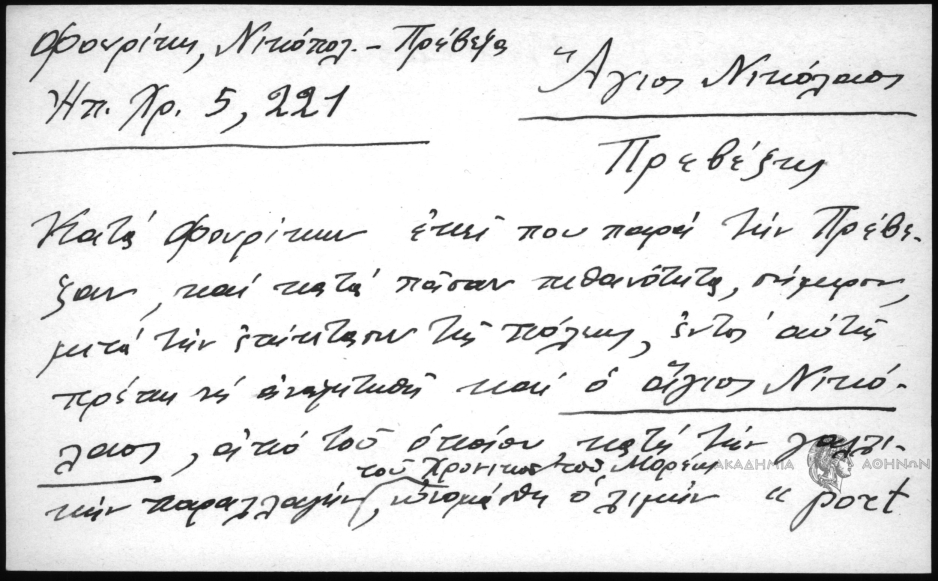 Φουρίκης, Νικόπολ. – Πρέβεζα
Ἠπ. Χρ. 5, 221
Ἅγιος Νικόλαος
Πρεβέζης
Κατά Φουρίκην ἐκεῖ που παρά τήν Πρέβε-
ζαν, καί κατά πᾶσαν πιθανότητα, σήμερον,
μετά τήν ἐπέκτασιν τῆς πόλεως, ἐντός αὐτῆς
πρέπει νά ἀναζητηθῆ καί ὁ ἅγιος Νικό-
λαος, ἀπό τοῦ ὁποίου κατά τήν γαλλι-
τοῦ Χρονικοῦ τοῦ Μορέως
κήν παραλλαγήν, ὠνομάσθη ὁ λιμήν "port
ΑΚΑΔΗΜΙΑ ΑΘΗΝΩΝ